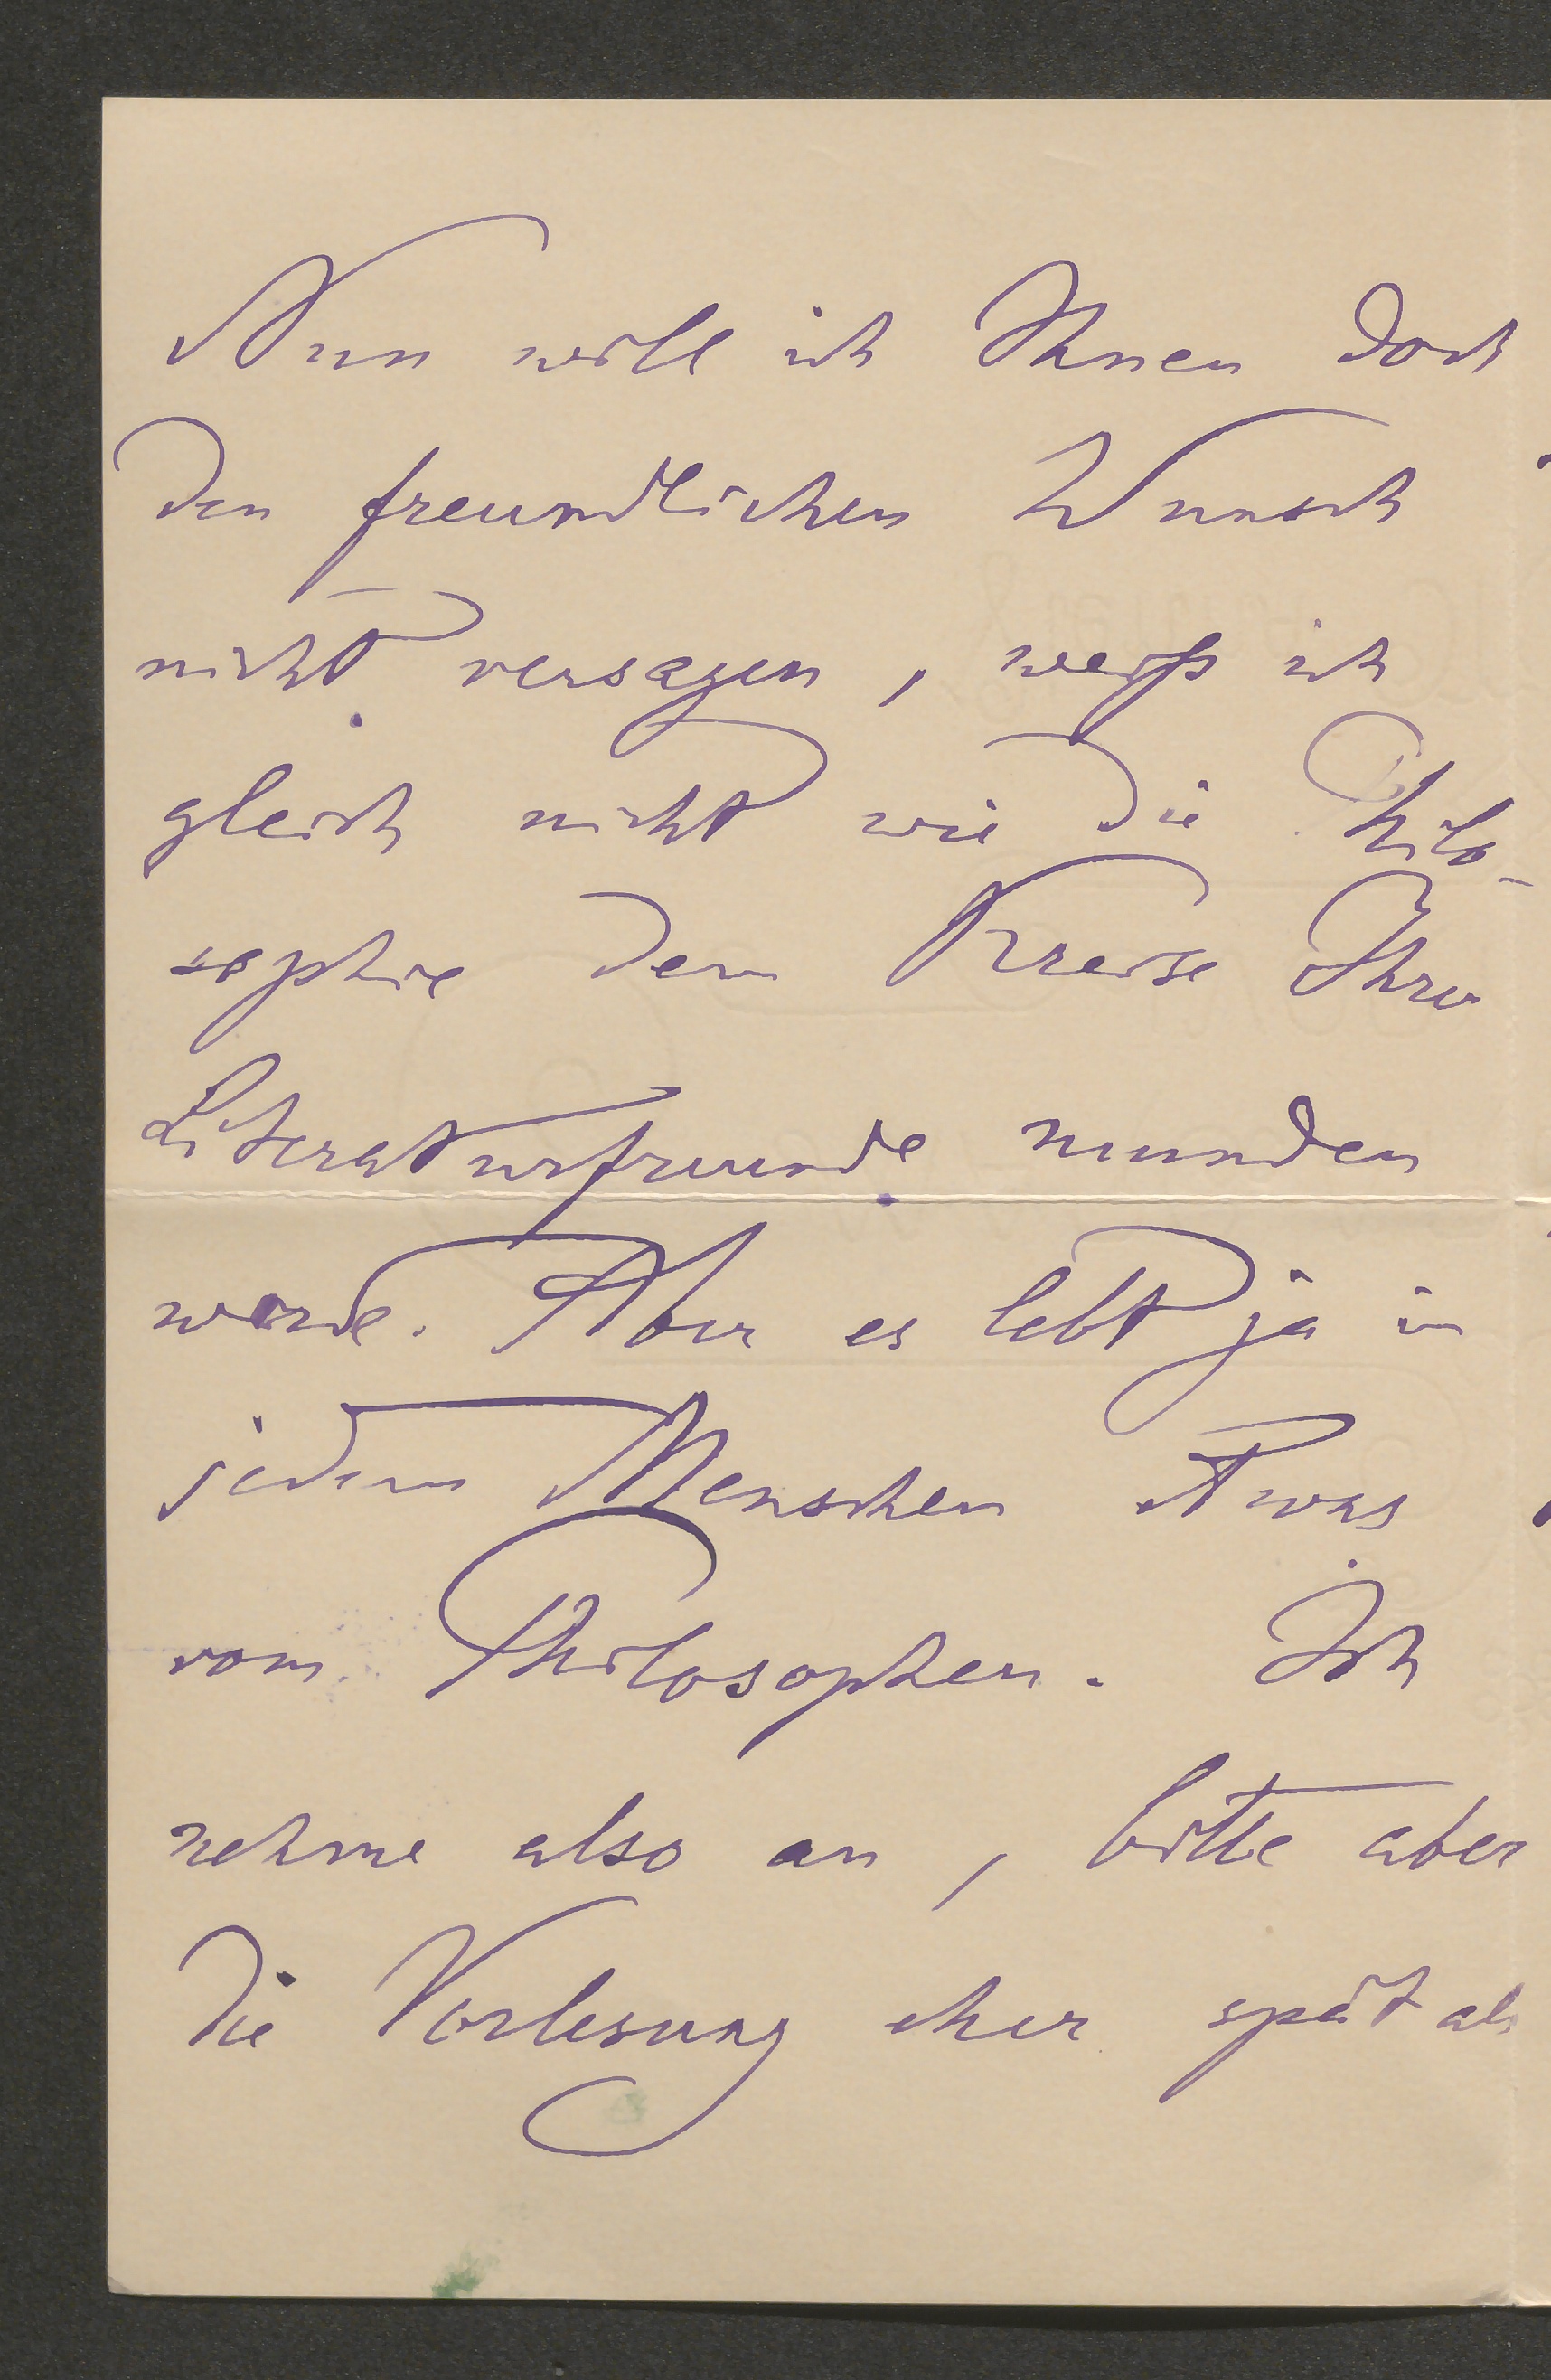 Nun will ich Ihnen doch
den freundlichen Wunsch
nicht versagen, weiß ich
gleich nicht wie die Philo-
sophie dem Kreise Ihrer
Literaturfreunde munden
werde. Aber es lebt ja in
jedem Menschen etwas
vom Philosophen. Ich
nehme also an, bitte aber
die Vorlesung eher spät als